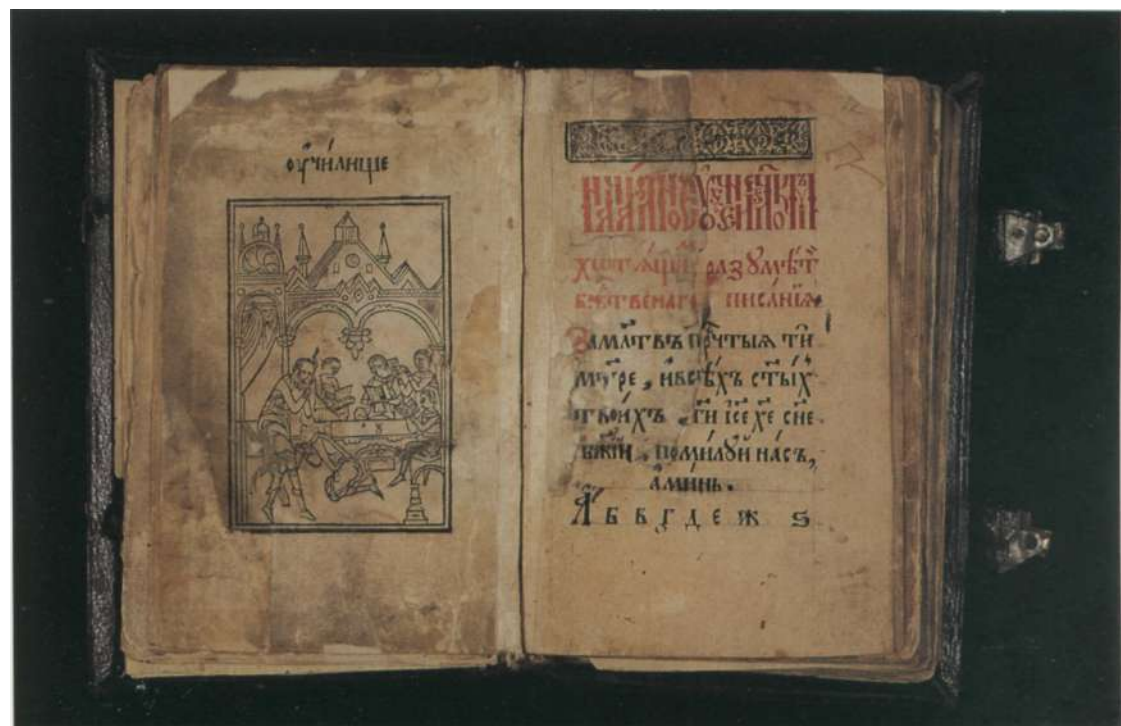 ᲂу҆чи́лище
хотѧ́щиⷨ разꙋмѣ́ⷮ
бж҃твенаго писа́нїѧ
За мл҃твъ пречⷭ҇тыѧ тѝ
мт҃ре, и всѣ́хъ ст҃ы́хъ
твои́хъ, гⷭ҇и і҆с҃е хⷭ҇е сн҃е
бж҃їи, поми́лꙋй на́съ,
а҆ми́нь.
А҆ Б В Г Д Е Ж Ѕ